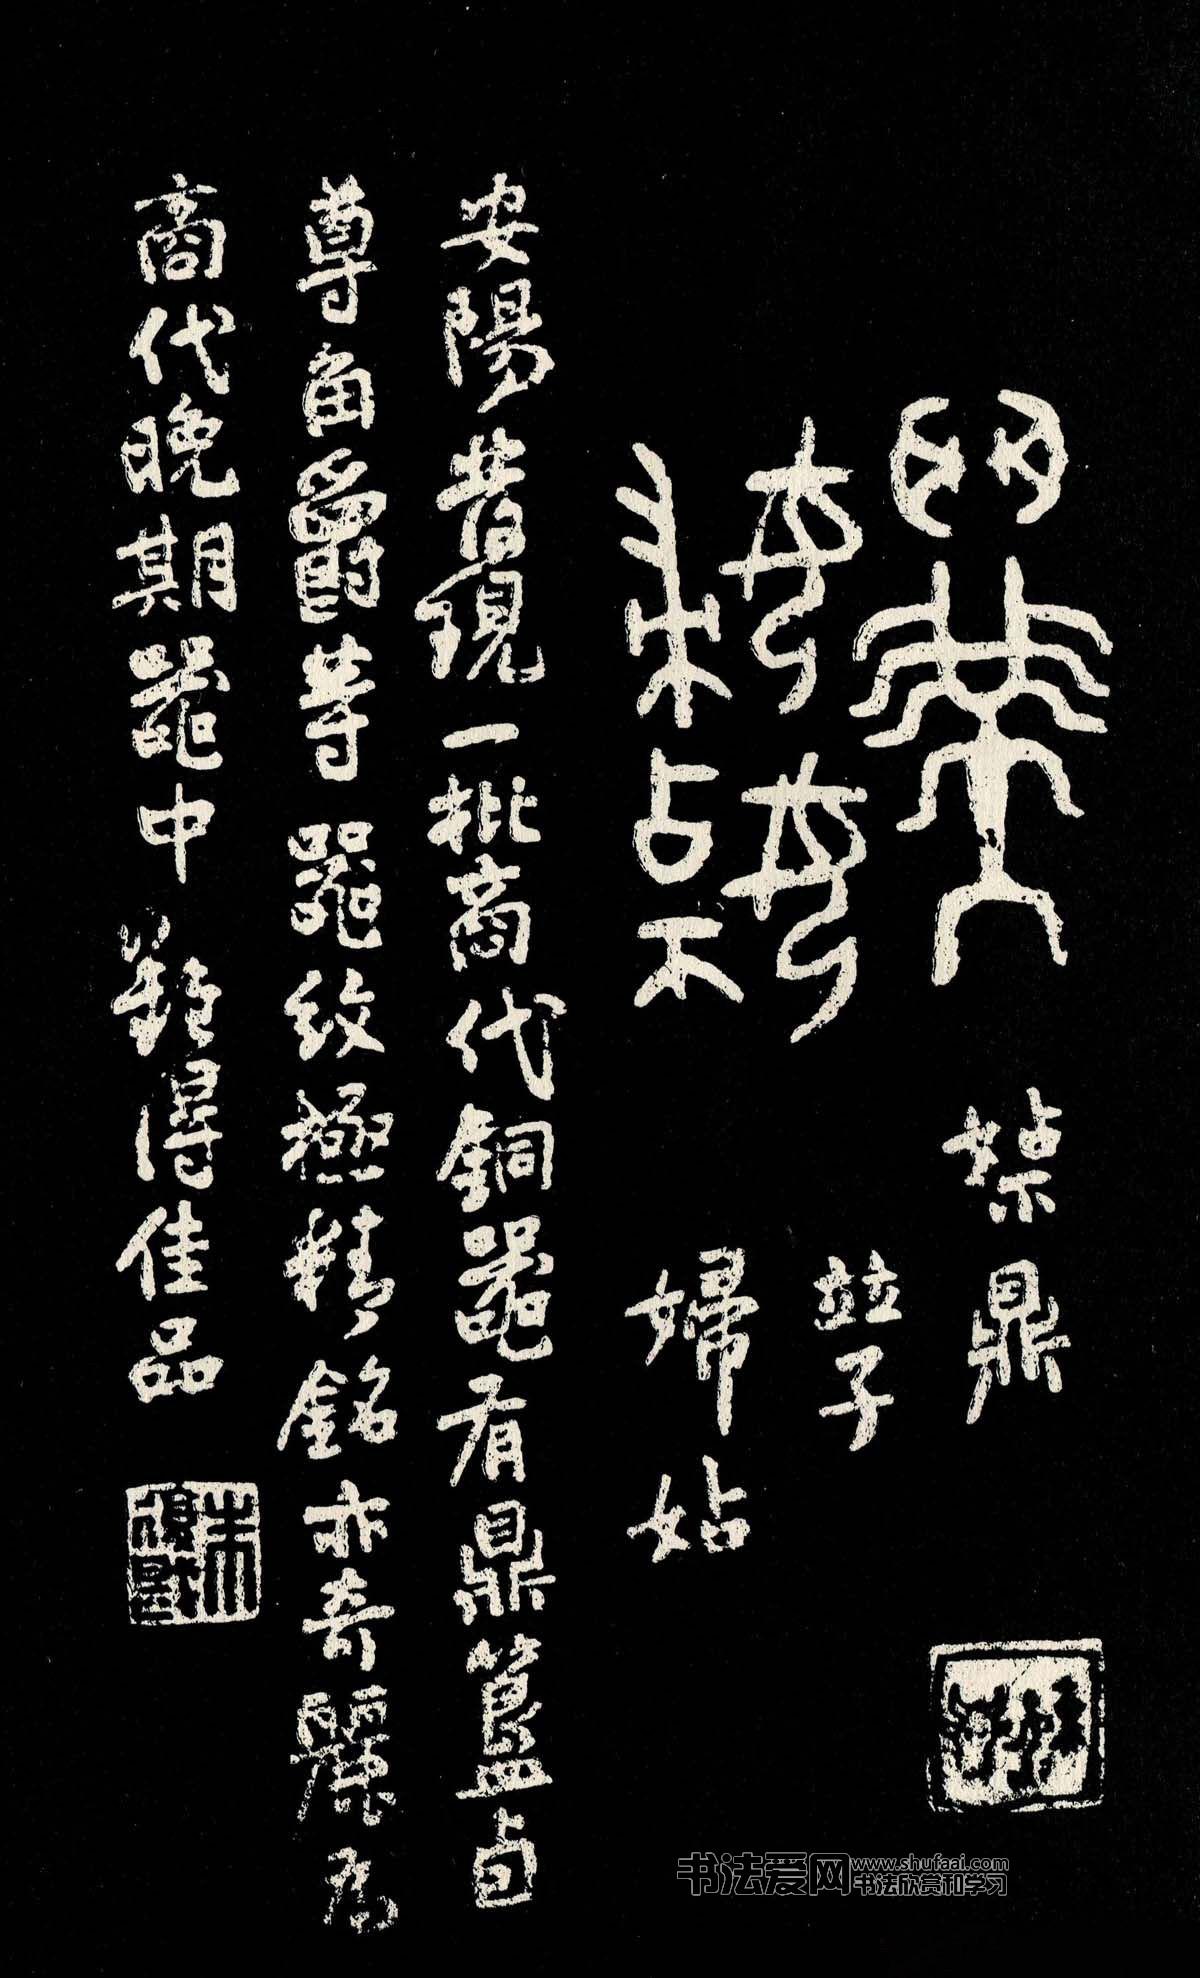 婦鼎
竝子
婦姑
安陽昔現一批商代銅器有鼎簋卣
尊角爵等器紋極精銘亦奇麗為
商代晚期器中難得佳品
朱復戡
书法爱网 www.shufaai.com
书法欣赏和学习